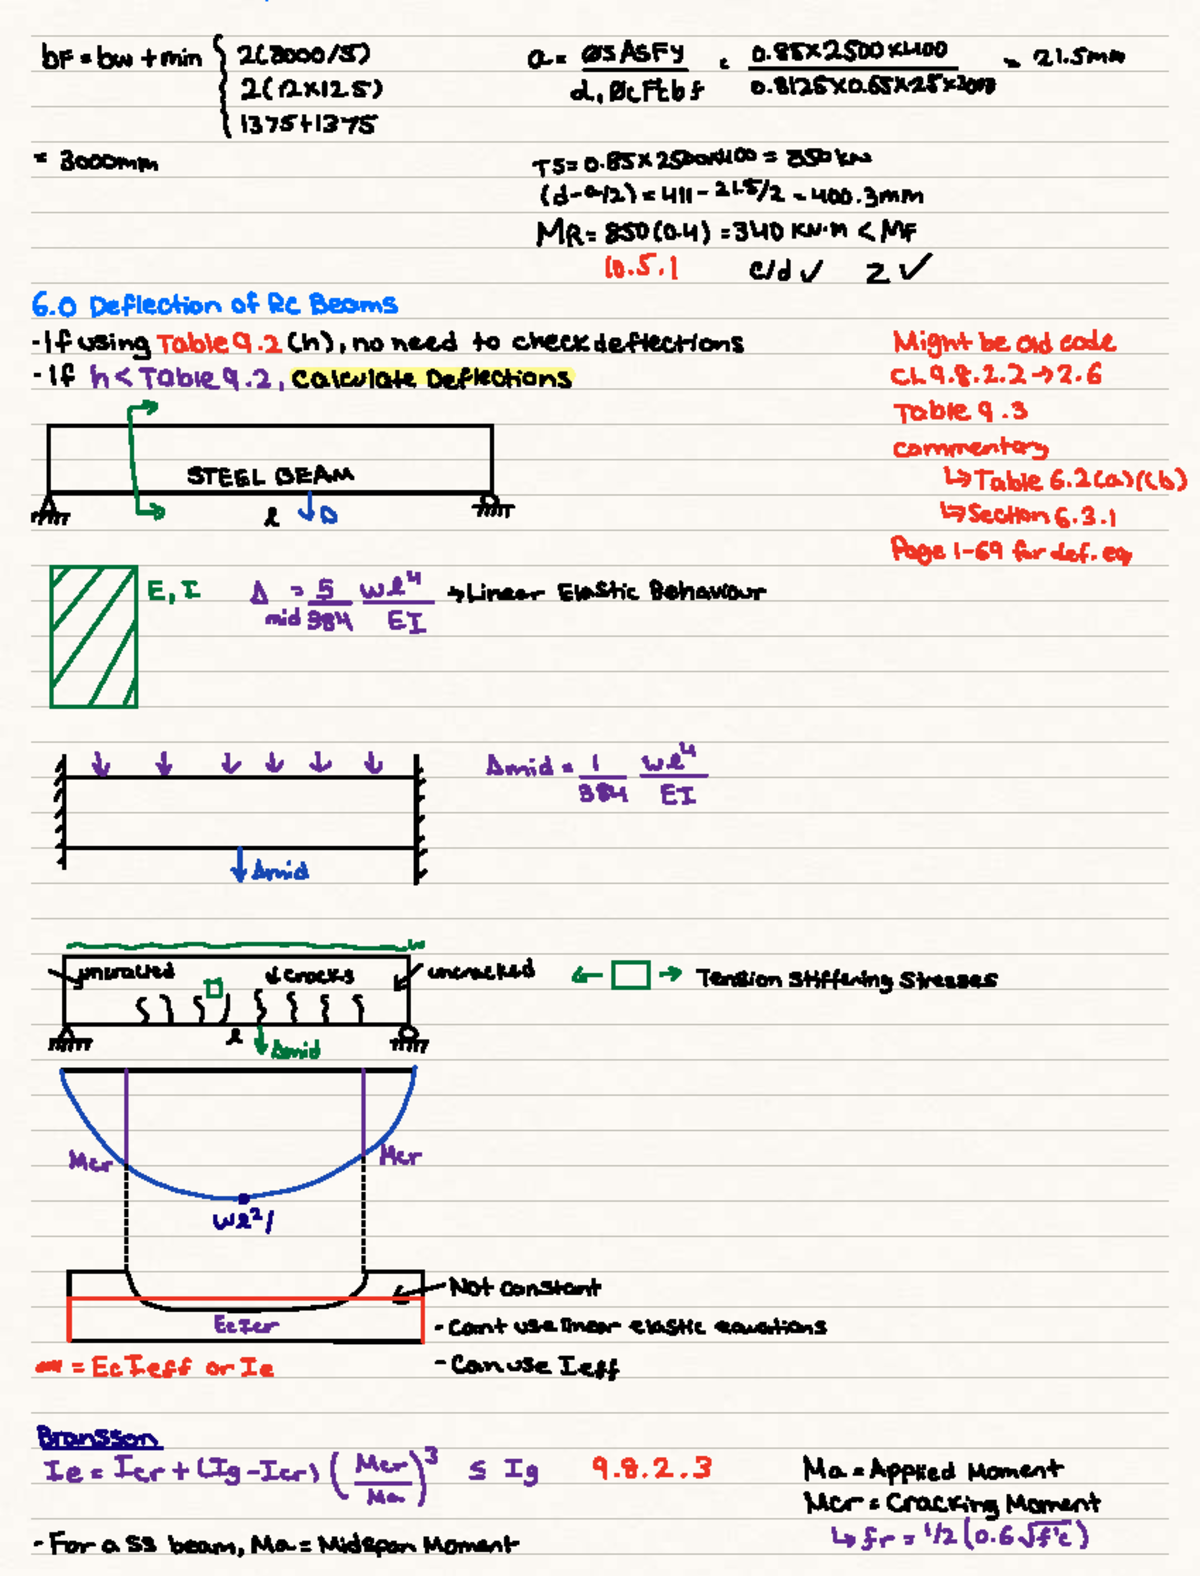 bF = bw + min { 2(3000/5)
2(12x12.5)
1375+1375
= 3000mm
a = øs As Fy / α1 øc F'c bf = 0.85x2500x400 / 0.8125x0.65x25x3000 = 21.5mm
TS = 0.85x2500x400 = 850 kN
(d-a/2) = 411 - 21.5/2 = 400.3mm
MR = 850(0.4) = 340 KN·m < MF
10.5.1 c/d ✓ z ✓
6.0 Deflection of RC Beams
-If using Table 9.2 (h), no need to check deflections
-If h < Table 9.2, Calculate Deflections
Might be old code
CL 9.8.2.2 → 2.6
Table 9.3
commentary
↳ Table 6.2(a)/(b)
↳ Section 6.3.1
Page 1-69 for def. eq
STEEL BEAM
l ↓ Δ
E, I Δmid = 5/384 wl⁴/EI → Linear Elastic Behaviour
Δmid = 1/384 wl⁴/EI
↓ Δmid
w
uncracked ↓ cracks uncracked ← □ → Tension Stiffening Stresses
l ↓ Δmid
Mcr Mcr
wl²/
Not constant
EcIcr - Can't use linear elastic equations
= EcIeff or Ie - Can use Ieff
Bransson
Ie = Icr + (Ig - Icr) (Mcr/Ma)³ ≤ Ig 9.8.2.3
Ma = Applied Moment
Mcr = Cracking Moment
↳ fr = 1/2 (0.6√f'c)
- For a SS beam, Ma = Midspan Moment